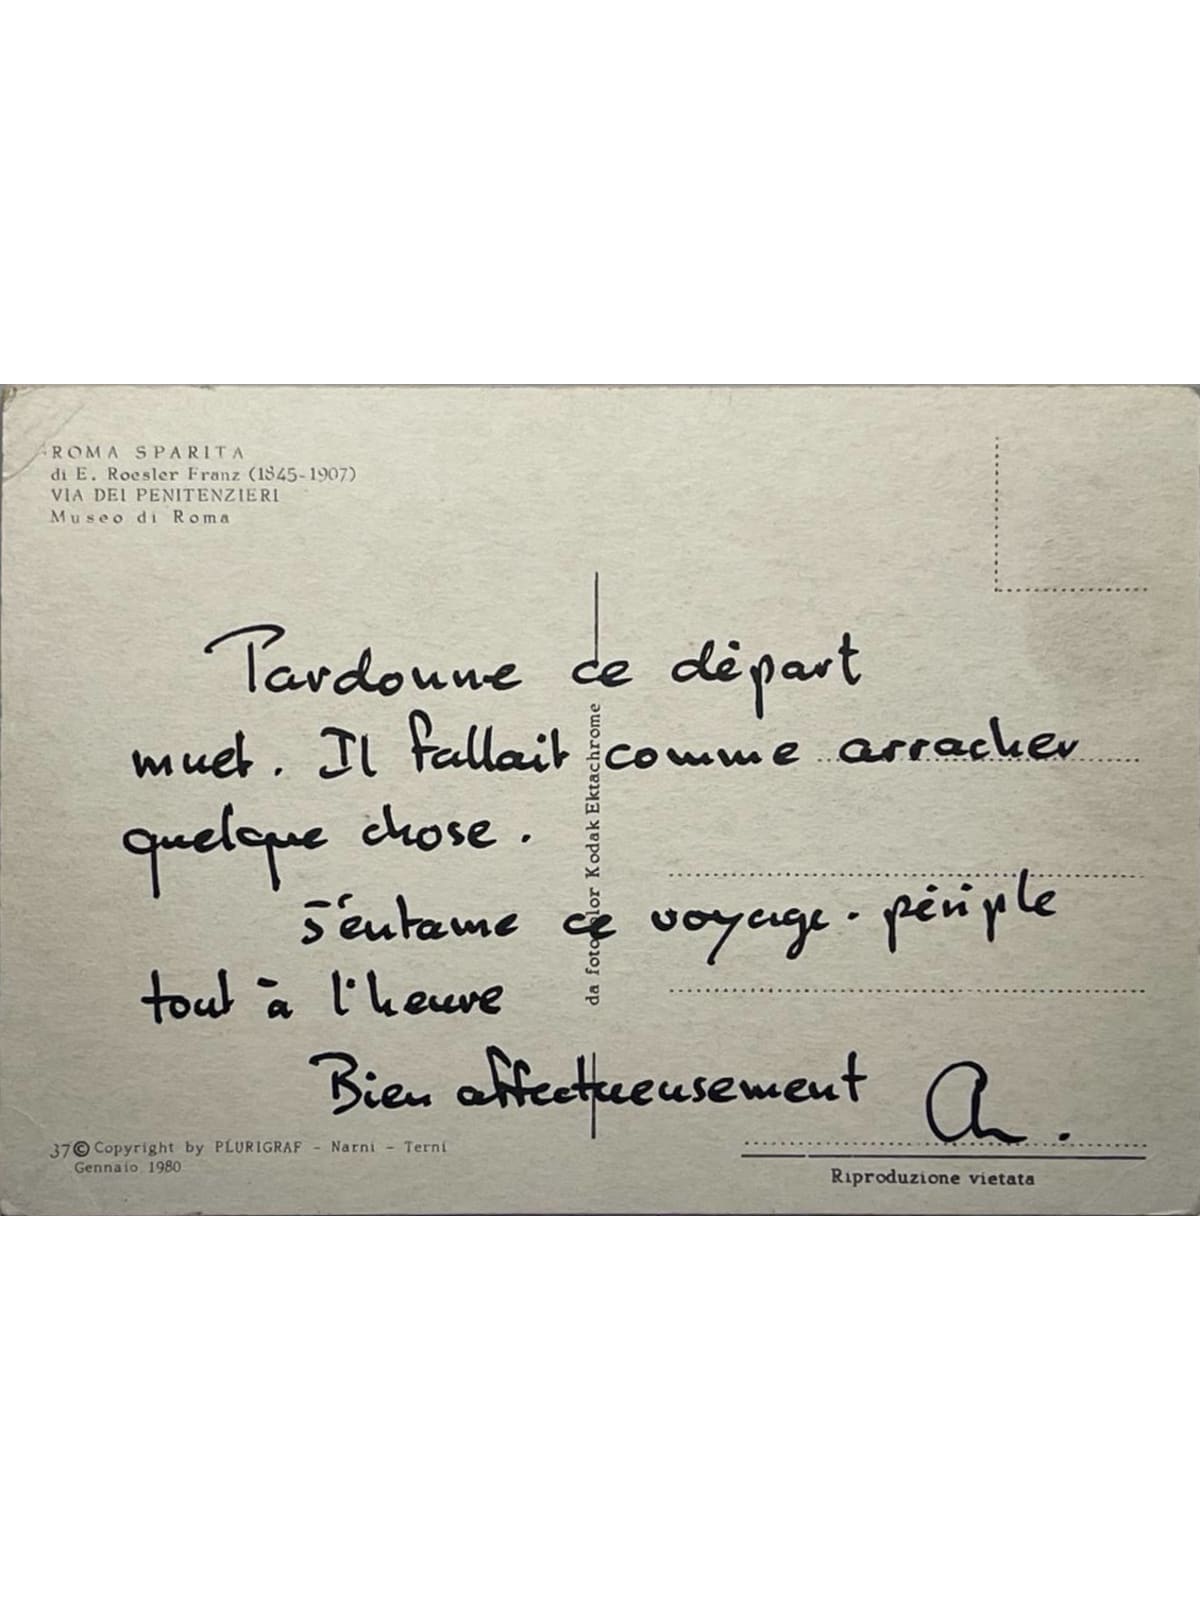 ROMA SPARITA
di E. Roesler Franz (1845-1907)
VIA DEI PENITENZIERI
Museo di Roma
Pardonne ce départ
muet. Il fallait comme arracher
quelque chose.
S'entame ce voyage-périple
tout à l'heure
Bien affectueusement A.
da fotocolor Kodak Ektachrome
37 © Copyright by PLURIGRAF - Narni - Terni
Gennaio 1980
Riproduzione vietata